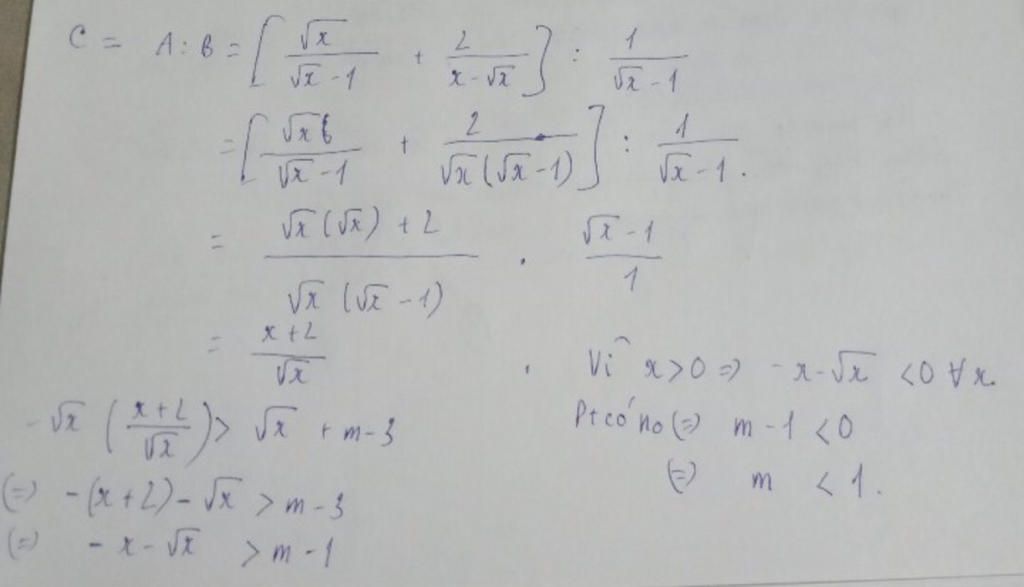 C = A : B = [ √x / (√x - 1) + 2 / (x - √x) ] : 1 / (√x - 1)
= [ √x / (√x - 1) + 2 / (√x (√x - 1)) ] : 1 / (√x - 1) .
= (√x (√x) + 2) / (√x (√x - 1)) . (√x - 1) / 1
= (x + 2) / √x
- √x ( (x + 2) / √x ) > √x + m - 3
(=) - (x + 2) - √x > m - 3
(=) - x - √x > m - 1
. Vì x > 0 => - x - √x < 0 ∀ x.
Pt có no (=) m - 1 < 0
(=) m < 1 .